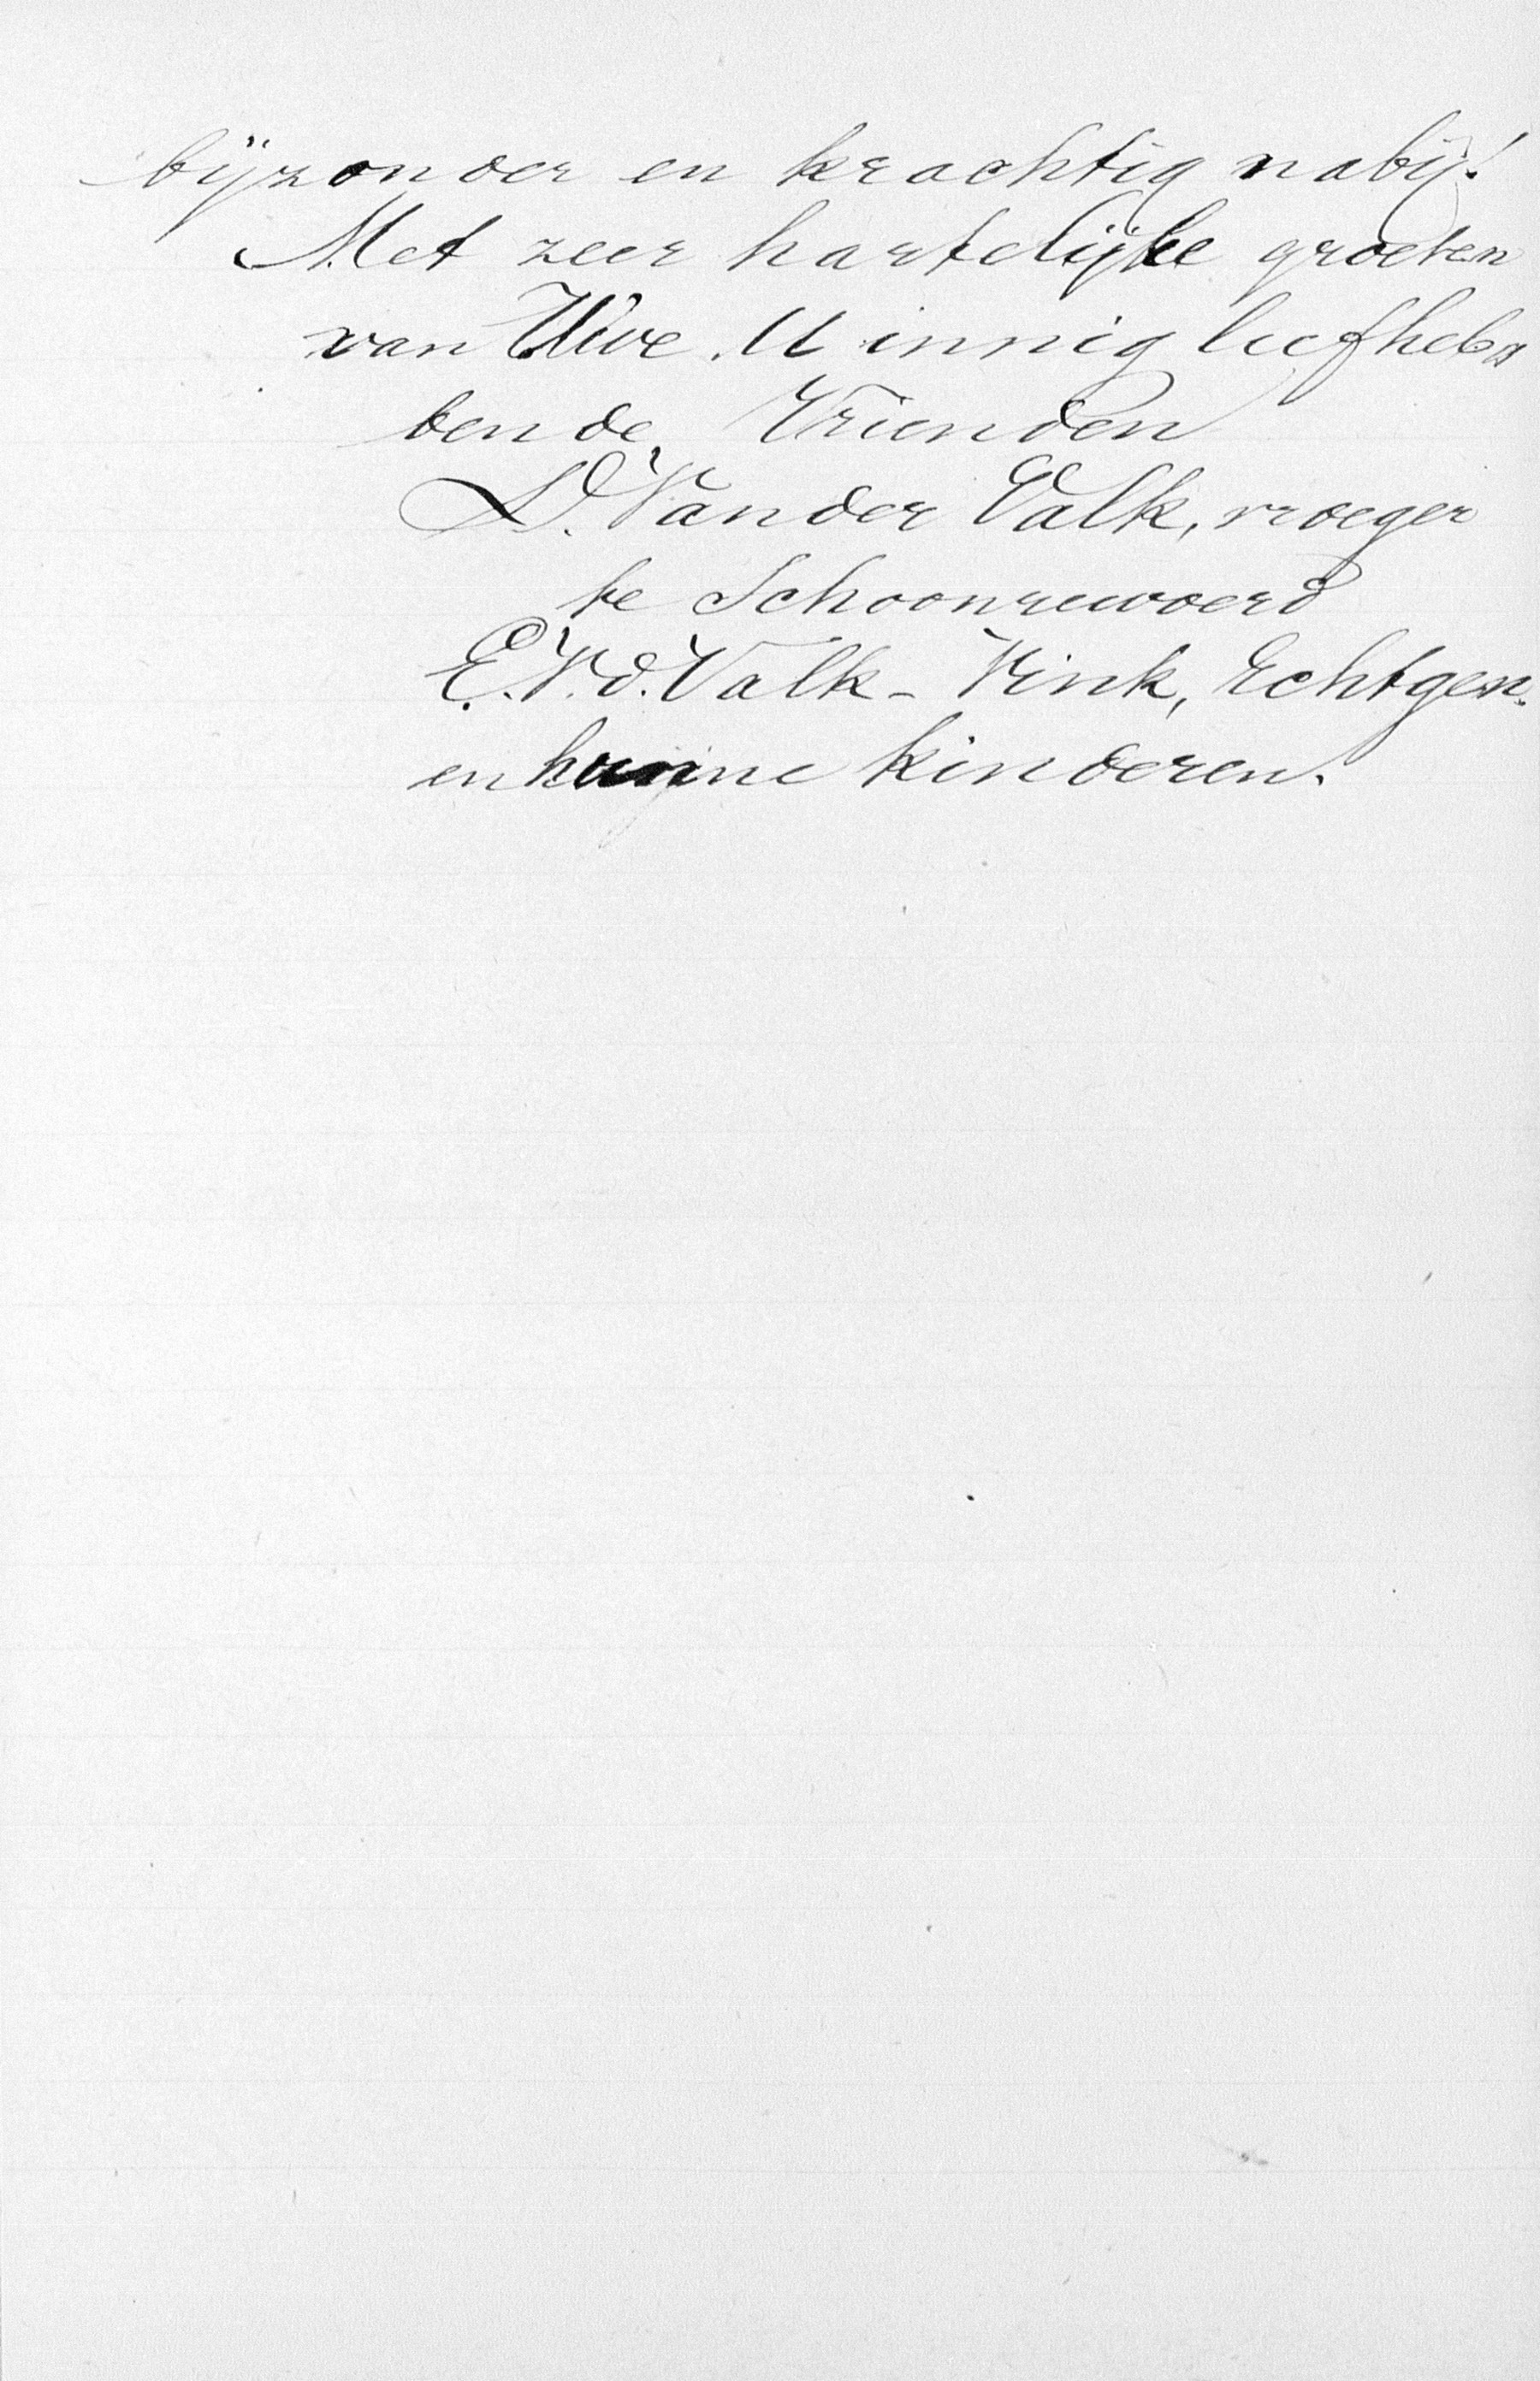 bijzonder en krachtig nabij!
Met zeer hartelijke groeten
van Uwe. U innig liefheb=
bende Vrienden
D. Van der Valk, vroeger
te Schoonrewoerd
E. V. d. Valk - Vink, Echtgen.
en hunne kinderen.